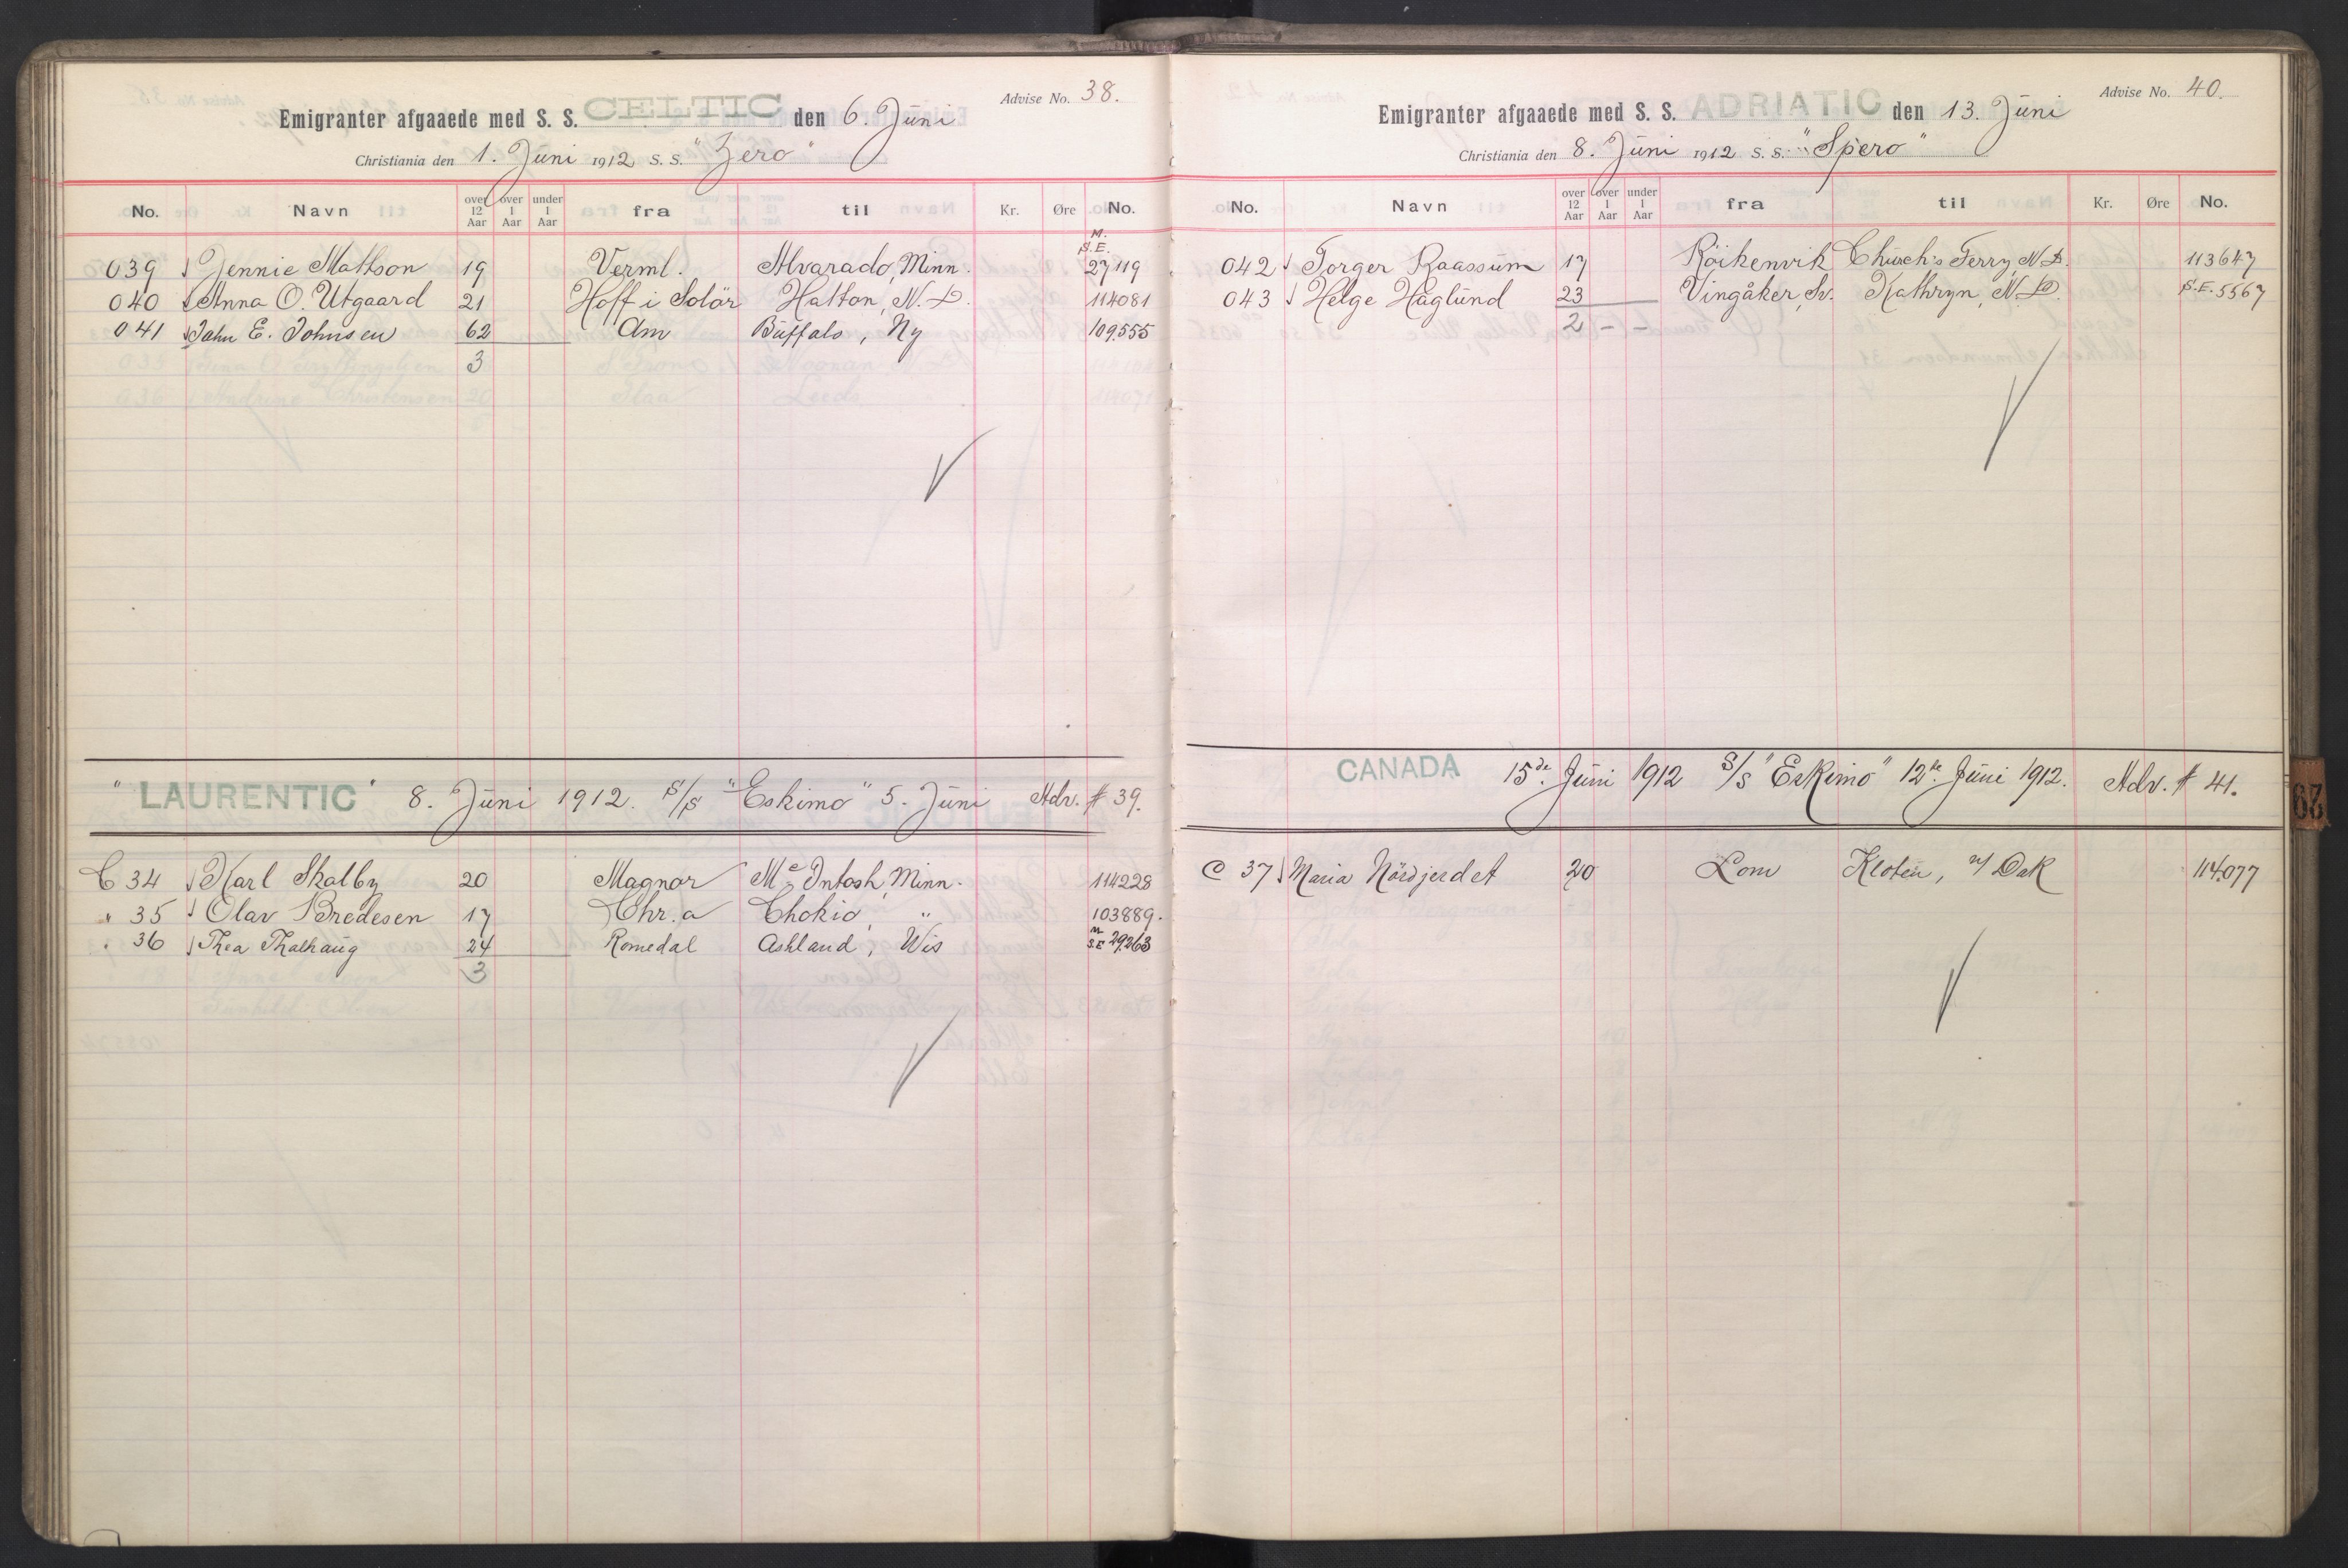 Advise No. 38.
Emigranter afgaaede med S. S. CELTIC den 6. Juni
Christiania den 1. Juni 1912 S. S. "Zero"
No. Navn over 12 Aar over 1 Aar under 1 Aar fra til Kr. Øre No.
039 Jennie Mattson 19 Verml. Alvarado, Minn. M. S.E. 27119
040 Anna O. Utgaard 21 Hoff i Solör Hatton, N.D. 114081
041 John E. Johnsen 62 Am Buffalo, Ny 109555
3
"LAURENTIC" 8. Juni 1912. S/S "Eskimo" 5. Juni Adv. # 39.
C 34 Karl Skalby 20 Magnor Mc Intosh, Minn. 114228
" 35 Olav Bredesen 17 Chr.a Chokio, " 103889.
" 36 Thea Thalhaug 24 Romedal Ashland, Wis M S.E 29263
3
Advise No. 40.
Emigranter afgaaede med S. S. ADRIATIC den 13. Juni
Christiania den 8. Juni 1912 S. S. "Spero"
No. Navn over 12 Aar over 1 Aar under 1 Aar fra til Kr. Øre No.
042 Torger Raassum 17 Röikenvik Church's Ferry, N.D. 113647
043 Helge Haglund 23 Vingåker, Sv. Kathryn, N.D. S.E. 5567
2 - -
CANADA 15de Juni 1912 S/S "Eskimo" 12te Juni 1912. Adv. # 41.
C 37 Maria Nördjerdet 20 Lom Kloten, N/ Dak 114.077